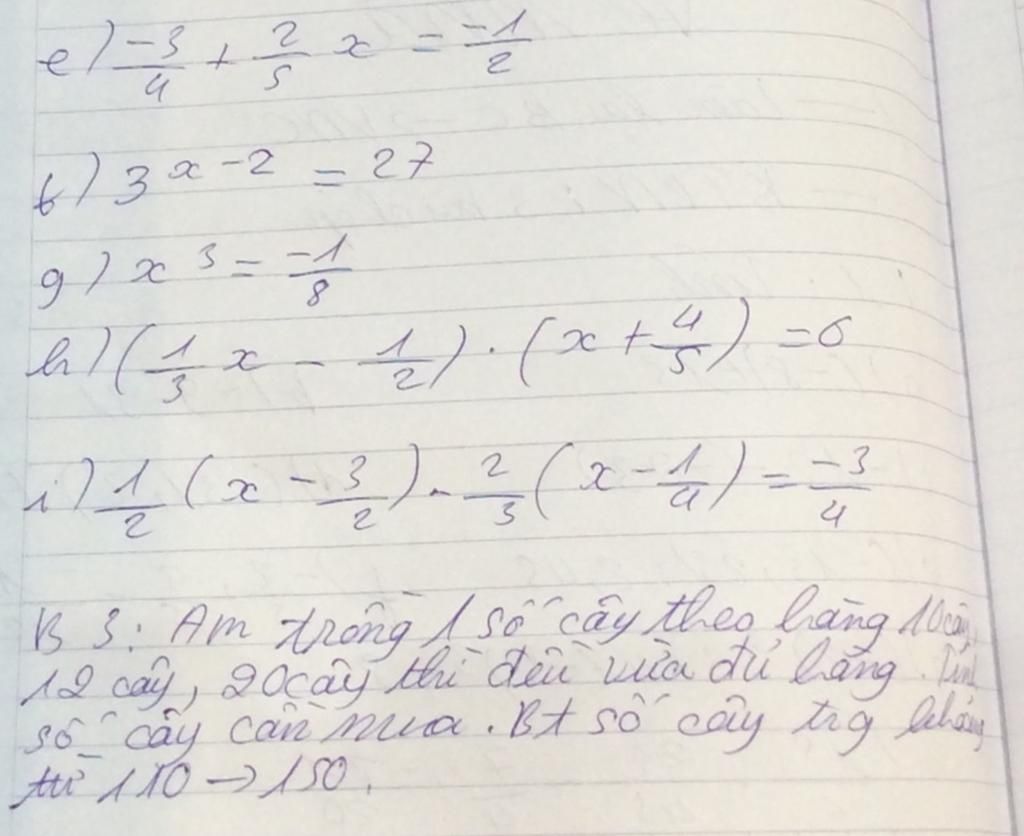 e) -3/4 + 2/5 x = -1/2
f) 3^{x-2} = 27
g) x^3 = -1/8
h) (1/3 x - 1/2) . (x + 4/5) = 0
i) 1/2 (x - 3/2) - 2/3 (x - 1/4) = -3/4
B 3: Am trồng 1 số cây theo hàng 10 cây,
12 cây, 20 cây thì đều vừa đủ hàng. Tính
số cây cần mua. Bt số cây trg khoảng
từ 110 → 150.